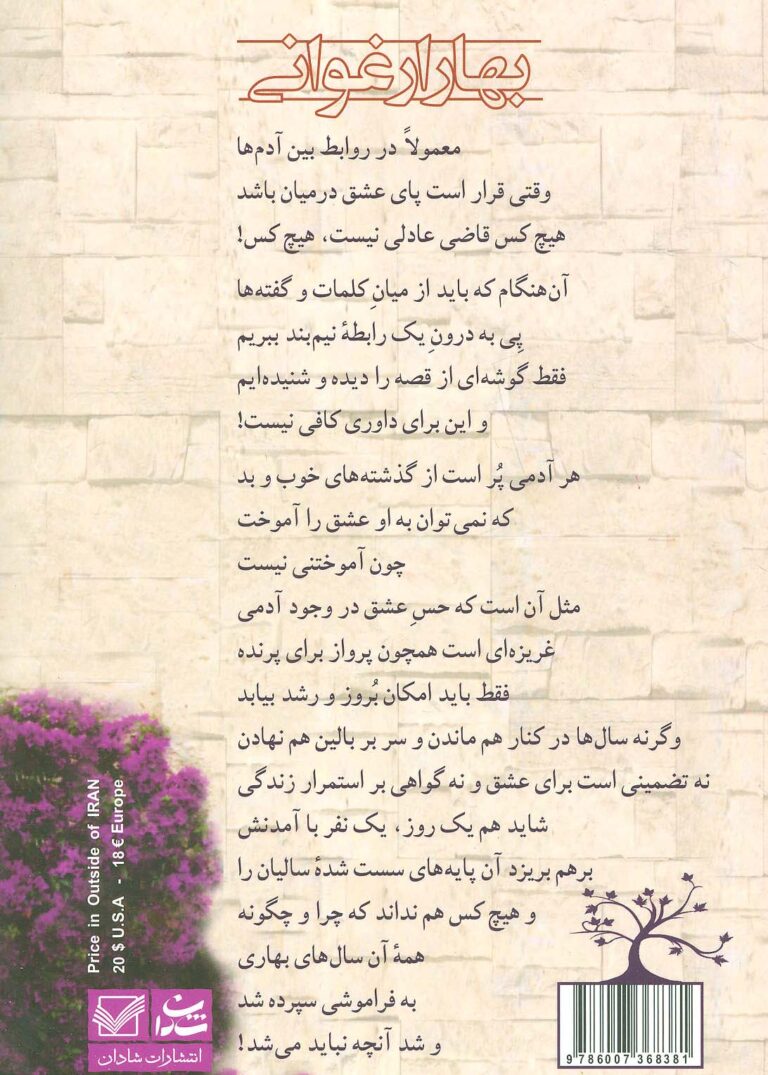 بهار ارغوانی
معمولاً در روابط بین آدم‌ها
وقتی قرار است پای عشق درمیان باشد
هیچ کس قاضی عادلی نیست، هیچ کس!
آن‌هنگام که باید از میانِ کلمات و گفته‌ها
پِی به درونِ یک رابطهٔ نیم‌بند ببریم
فقط گوشه‌ای از قصه را دیده و شنیده‌ایم
و این برای داوری کافی نیست!
هر آدمی پُر است از گذشته‌های خوب و بد
که نمی‌توان به او عشق را آموخت
چون آموختنی نیست
مثل آن است که حسِ عشق در وجود آدمی
غریزه‌ای است همچون پرواز برای پرنده
فقط باید امکان بُروز و رشد بیابد
وگرنه سال‌ها در کنار هم ماندن و سر بر بالین هم نهادن
نه تضمینی است برای عشق و نه گواهی بر استمرار زندگی
شاید هم یک روز، یک نفر با آمدنش
برهم بریزد آن پایه‌های سست شدهٔ سالیان را
و هیچ کس هم نداند که چرا و چگونه
همهٔ آن سال‌های بهاری
به فراموشی سپرده شد
و شد آنچه نباید می‌شد!
Price in Outside of IRAN
20 $ U.S.A - 18 € Europe
شادان
انتشارات شادان
9 786007 368381